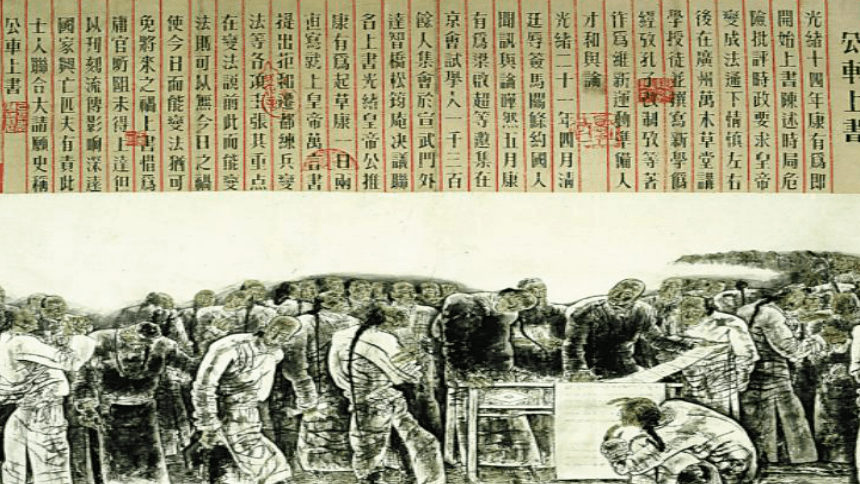 公車上書
光緒十四年康有爲即
開始上書陳述時局危
險批評時政要求皇帝
變成法通下情慎左右
後在廣州萬木草堂講
學授徒並撰寫新學僞
經攷孔子改制攷等著
作爲維新運動準備人
才和輿論
光緒二十一年四月清
廷辱簽馬關條約國人
聞訊輿論嘩然五月康
有爲梁啟超等邀集在
京會試舉人一千三百
餘人集會於宣武門外
達智橋松筠庵决議聯
名上書光緒皇帝公推
康有爲起草康一日兩
寫就上皇帝萬言書
提出拒和遷都練兵變
法等各項主張其重點
在變法説前此而能變
法則可以無今日之禍
使今日而能變法猶可
免將來之禍上書惜爲
庸官阻未得上達但
以刊刻流傳影響深遠
國家興亡匹夫有責此
士人聯合大請願史稱
公車上書